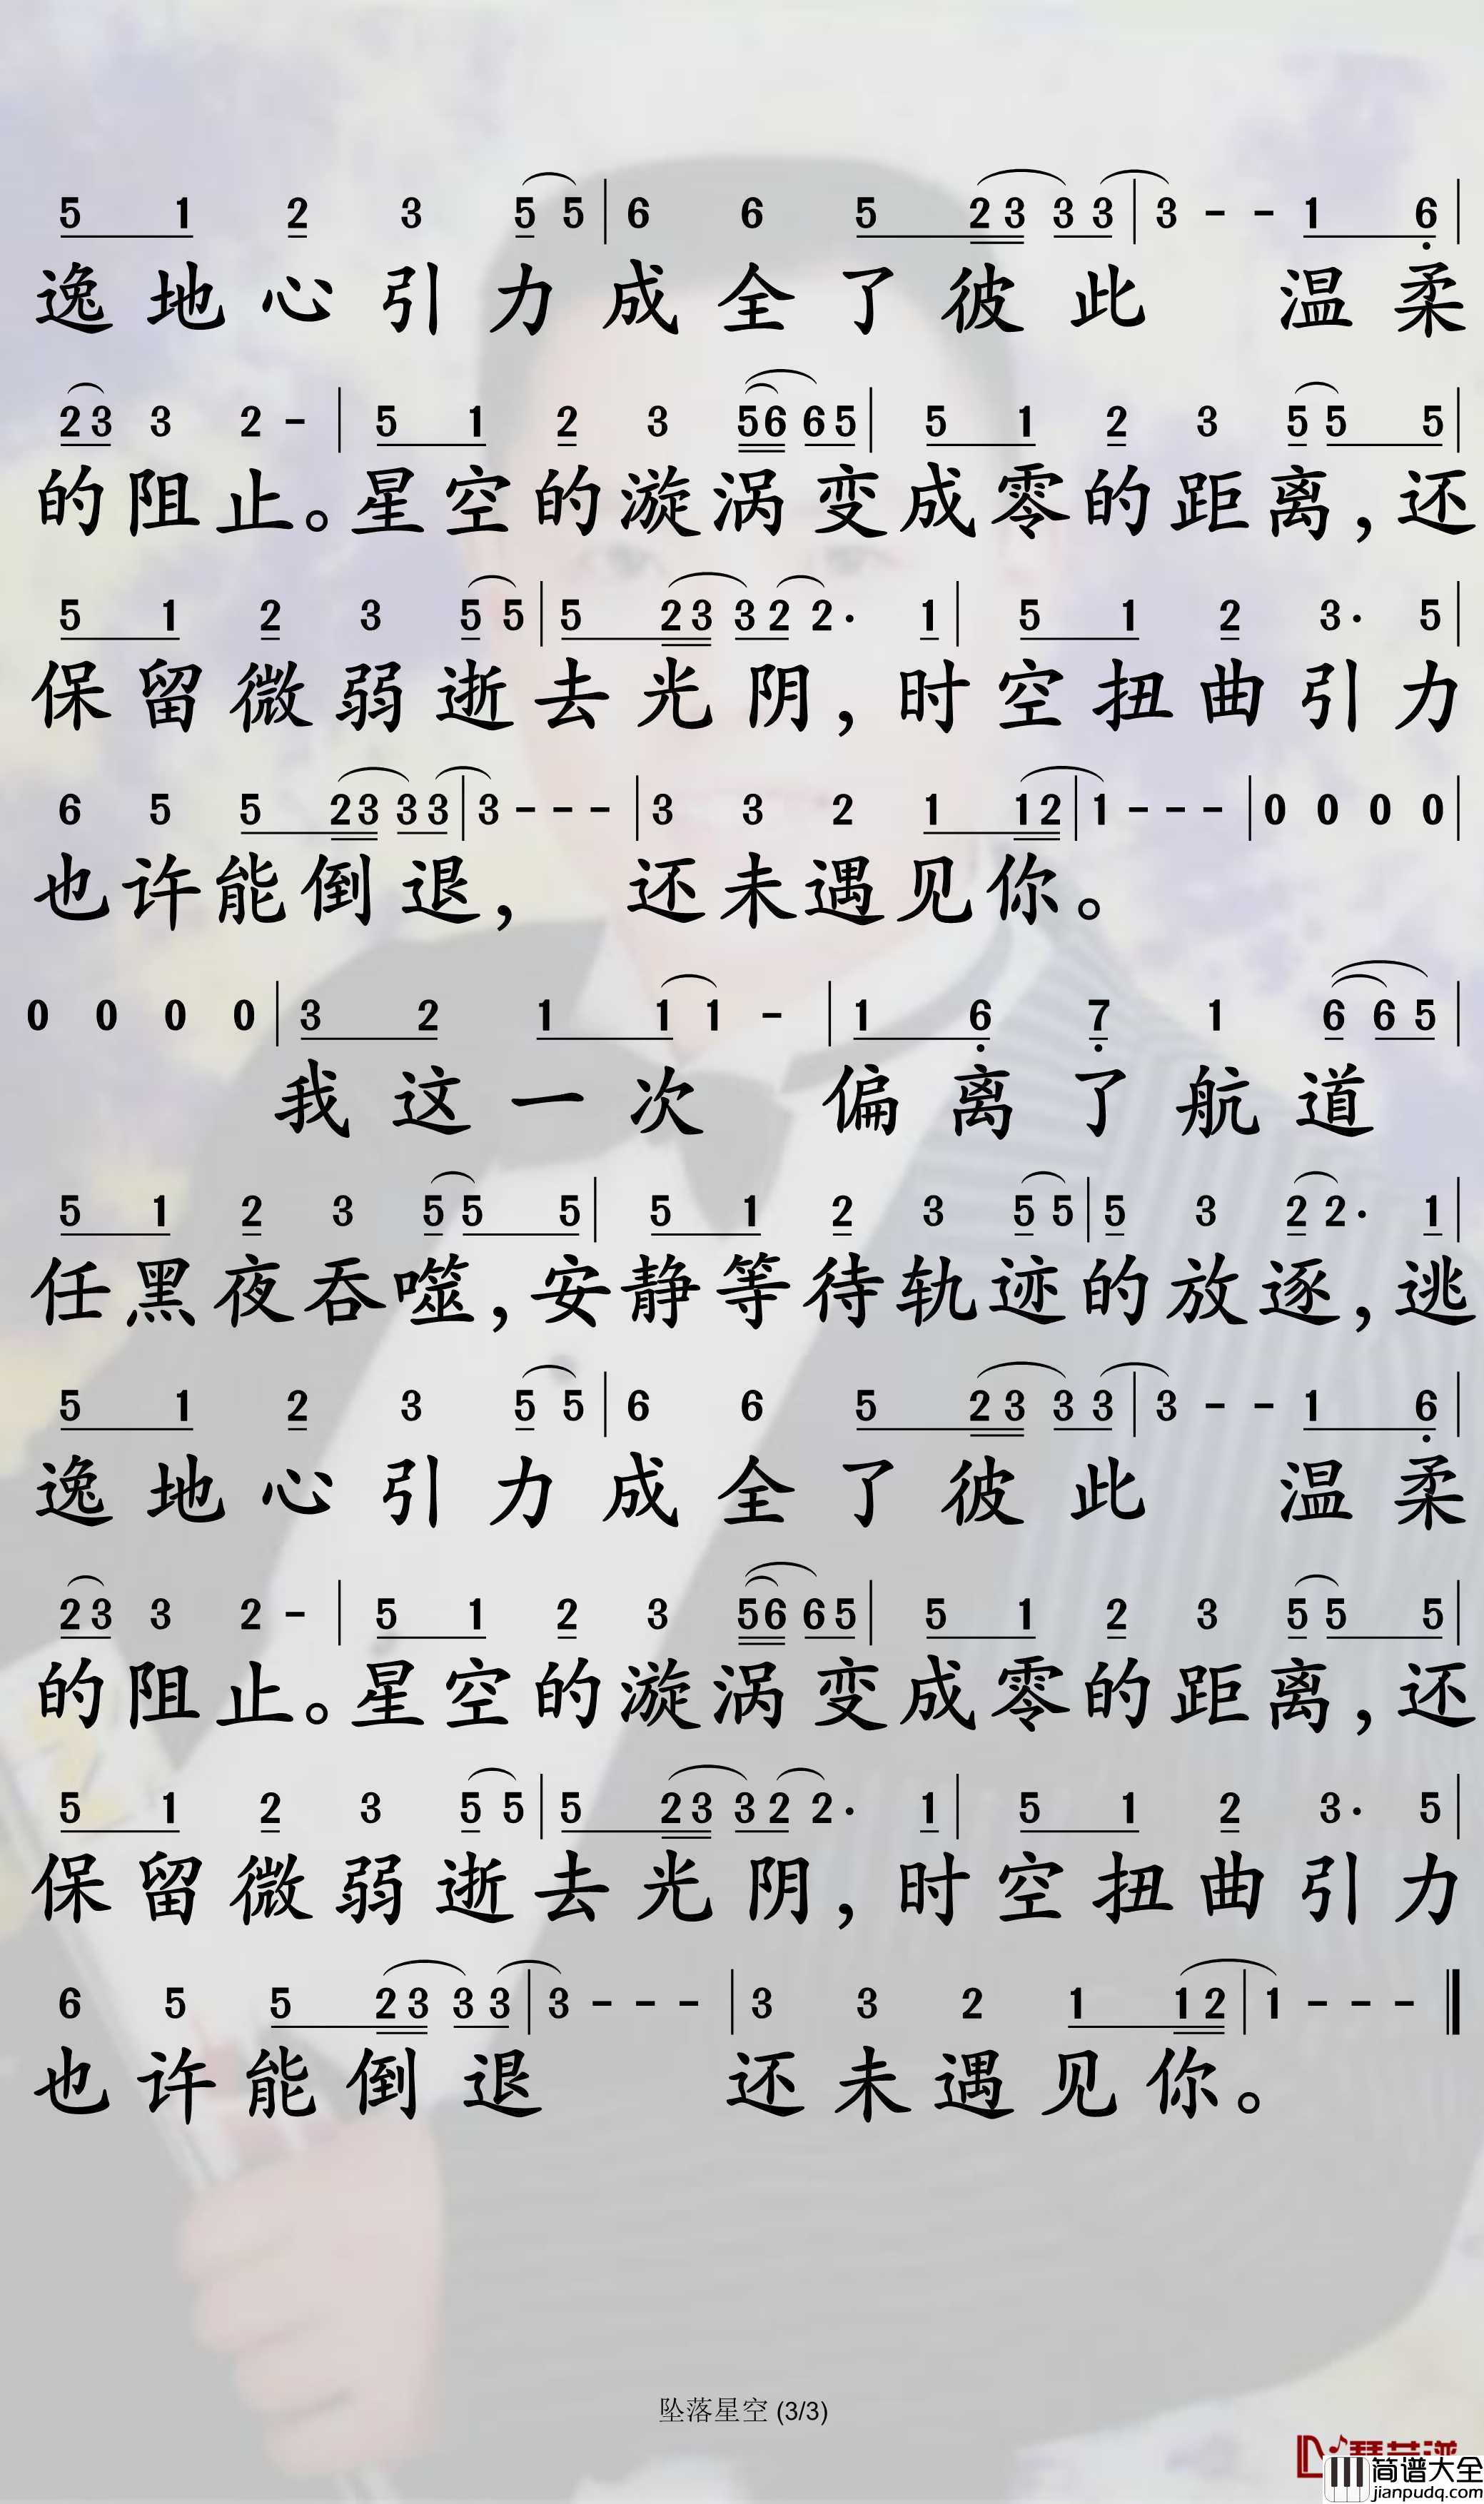 5 1 2 3 5 5 | 6 6 5 2 3 3 3 | 3 - - 1 6 |
逸地心引力成全了彼此 温柔
2 3 3 2 - | 5 1 2 3 5 6 6 5 | 5 1 2 3 5 5 5 |
的阻止。星空的漩涡变成零的距离,还
5 1 2 3 5 5 | 5 2 3 3 2 2 · 1 | 5 1 2 3 · 5 |
保留微弱逝去光阴,时空扭曲引力
6 5 5 2 3 3 3 | 3 - - - | 3 3 2 1 1 2 | 1 - - - | 0 0 0 0 |
也许能倒退, 还未遇见你。
0 0 0 0 | 3 2 1 1 1 - | 1 6 7 1 6 6 5 |
我这一次 偏离了航道
5 1 2 3 5 5 5 | 5 1 2 3 5 5 | 5 3 2 2 · 1 |
任黑夜吞噬,安静等待轨迹的放逐,逃
5 1 2 3 5 5 | 6 6 5 2 3 3 3 | 3 - - 1 6 |
逸地心引力成全了彼此 温柔
2 3 3 2 - | 5 1 2 3 5 6 6 5 | 5 1 2 3 5 5 5 |
的阻止。星空的漩涡变成零的距离,还
5 1 2 3 5 5 | 5 2 3 3 2 2 · 1 | 5 1 2 3 · 5 |
保留微弱逝去光阴,时空扭曲引力
6 5 5 2 3 3 3 | 3 - - - | 3 3 2 1 1 2 | 1 - - - ‖
也许能倒退 还未遇见你。
坠落星空 (3/3)
简谱大全
jianpudq.com